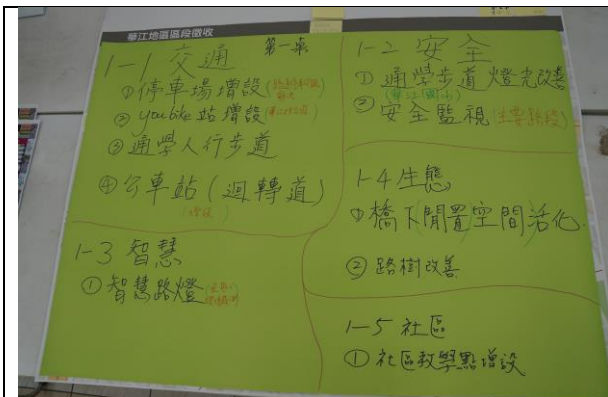 華江地區區段徵收
第一桌
1-1 交通
①停車場增設
② youbike 站增設
③通學人行步道
④公車站(迴轉道)
(增設)
1-2 安全
①通學步道燈光改善
(華江國小)
②安全監視(主要路段)
1-3 智慧
①智慧路燈
1-4 生態
①橋下閒置空間活化
②路樹改善
1-5 社區
①社區教學點增設